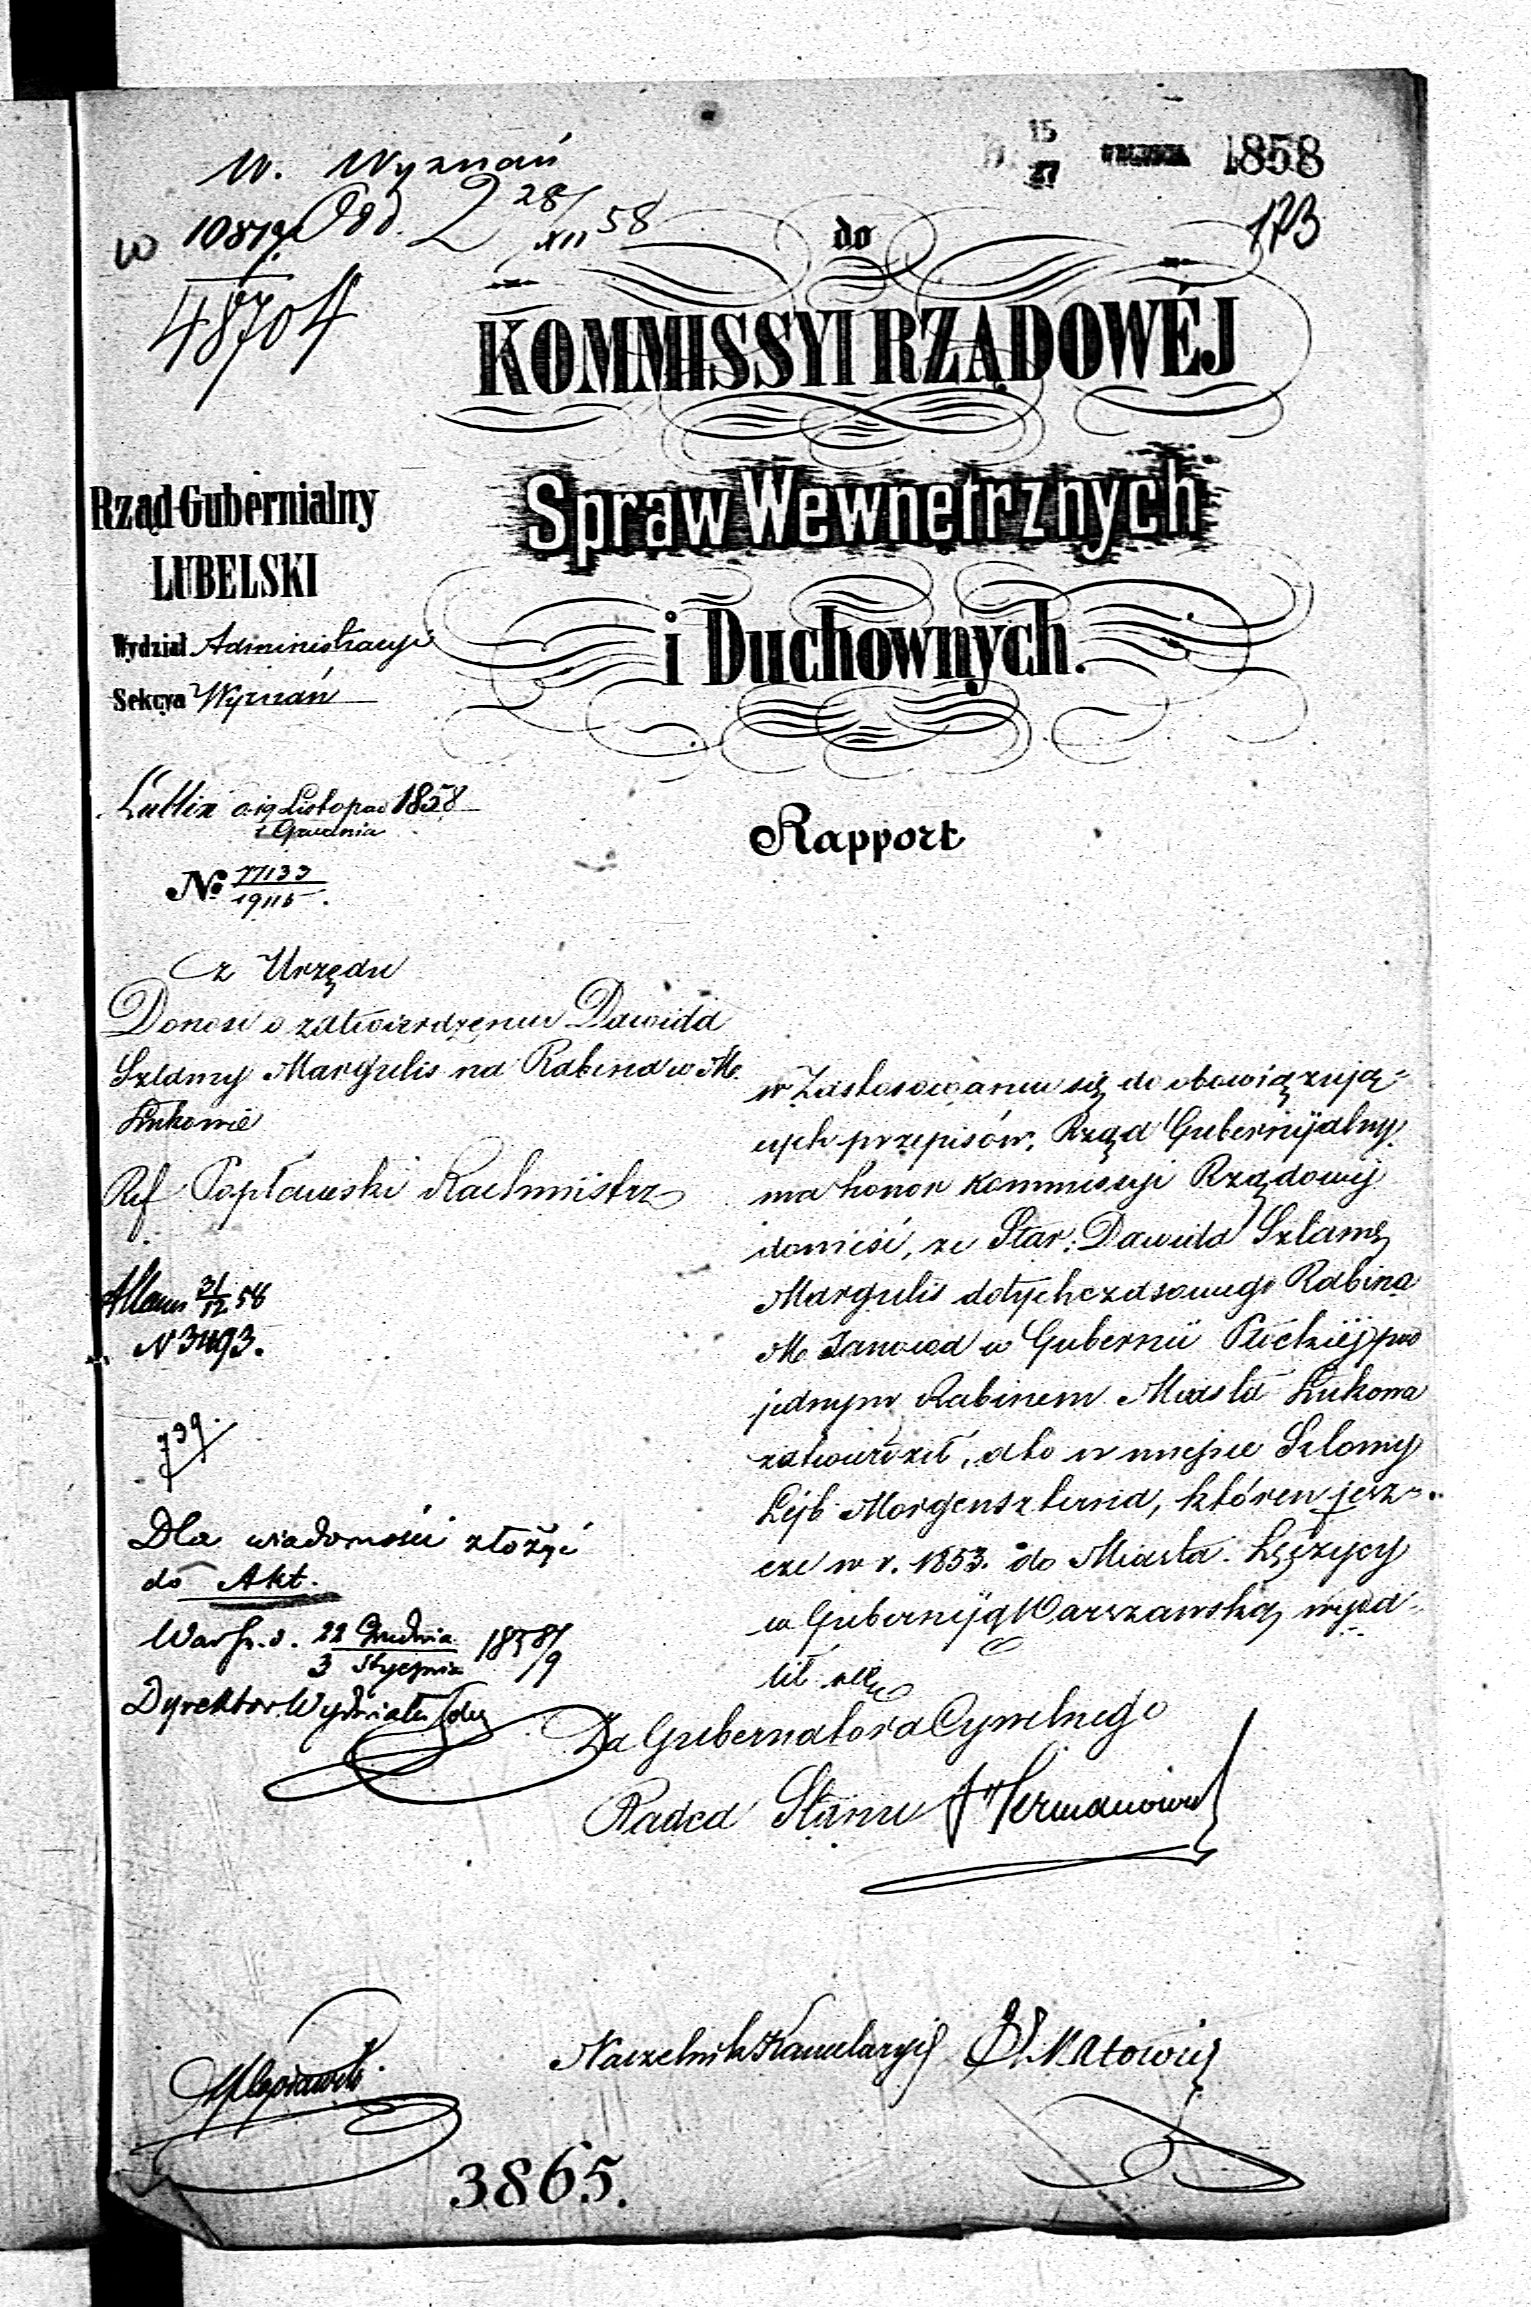 15
27
1858
173
W. Wyznań
Odd. 2 28/XII 58
w 10819
48704
do
KOMMISSYI RZĄDOWÉJ
Spraw Wewnętrznych
i Duchownych.
Rząd Gubernialny
LUBELSKI
Wydział Administracyi
Sekcya Wyznań
Lublin d. 19 Listopad 1858
1 Grudnia
Rapport
No 77133
z Urzędu
Donosi o zatwierdzeniu Dawida
Szlamy Margulis na Rabina w M.
Łukowie
Ref Popławski Rachmistrz
31/12 58
N 3493.
739.
Dla wiadomości złożyć
do Akt.
Warsz. d. 22 Grudnia 1858/9
3 Stycznia
Dyrektor Wydziału
w Zastosowaniu się do obowiązują-
cych przepisów, Rząd Gubernijalny
ma honor Kommissyi Rządowej
donieść, że Star: Dawida Szlamę
Margulis dotychczasowego Rabina
M. Janowa w Gubernii Płockiej, po
jednym Rabinem Miasta Łukowa
zatwierdził, a to w miejsce Szlomy
Lejb Morgenszterna, któren jesz-
cze w r. 1853 do Miasta Łęczycy
w Guberniją Warszawską wyda-
lił się
Za Gubernatora Cywilnego
Radca Stanu
Naczelnik Kancelaryi
3865.